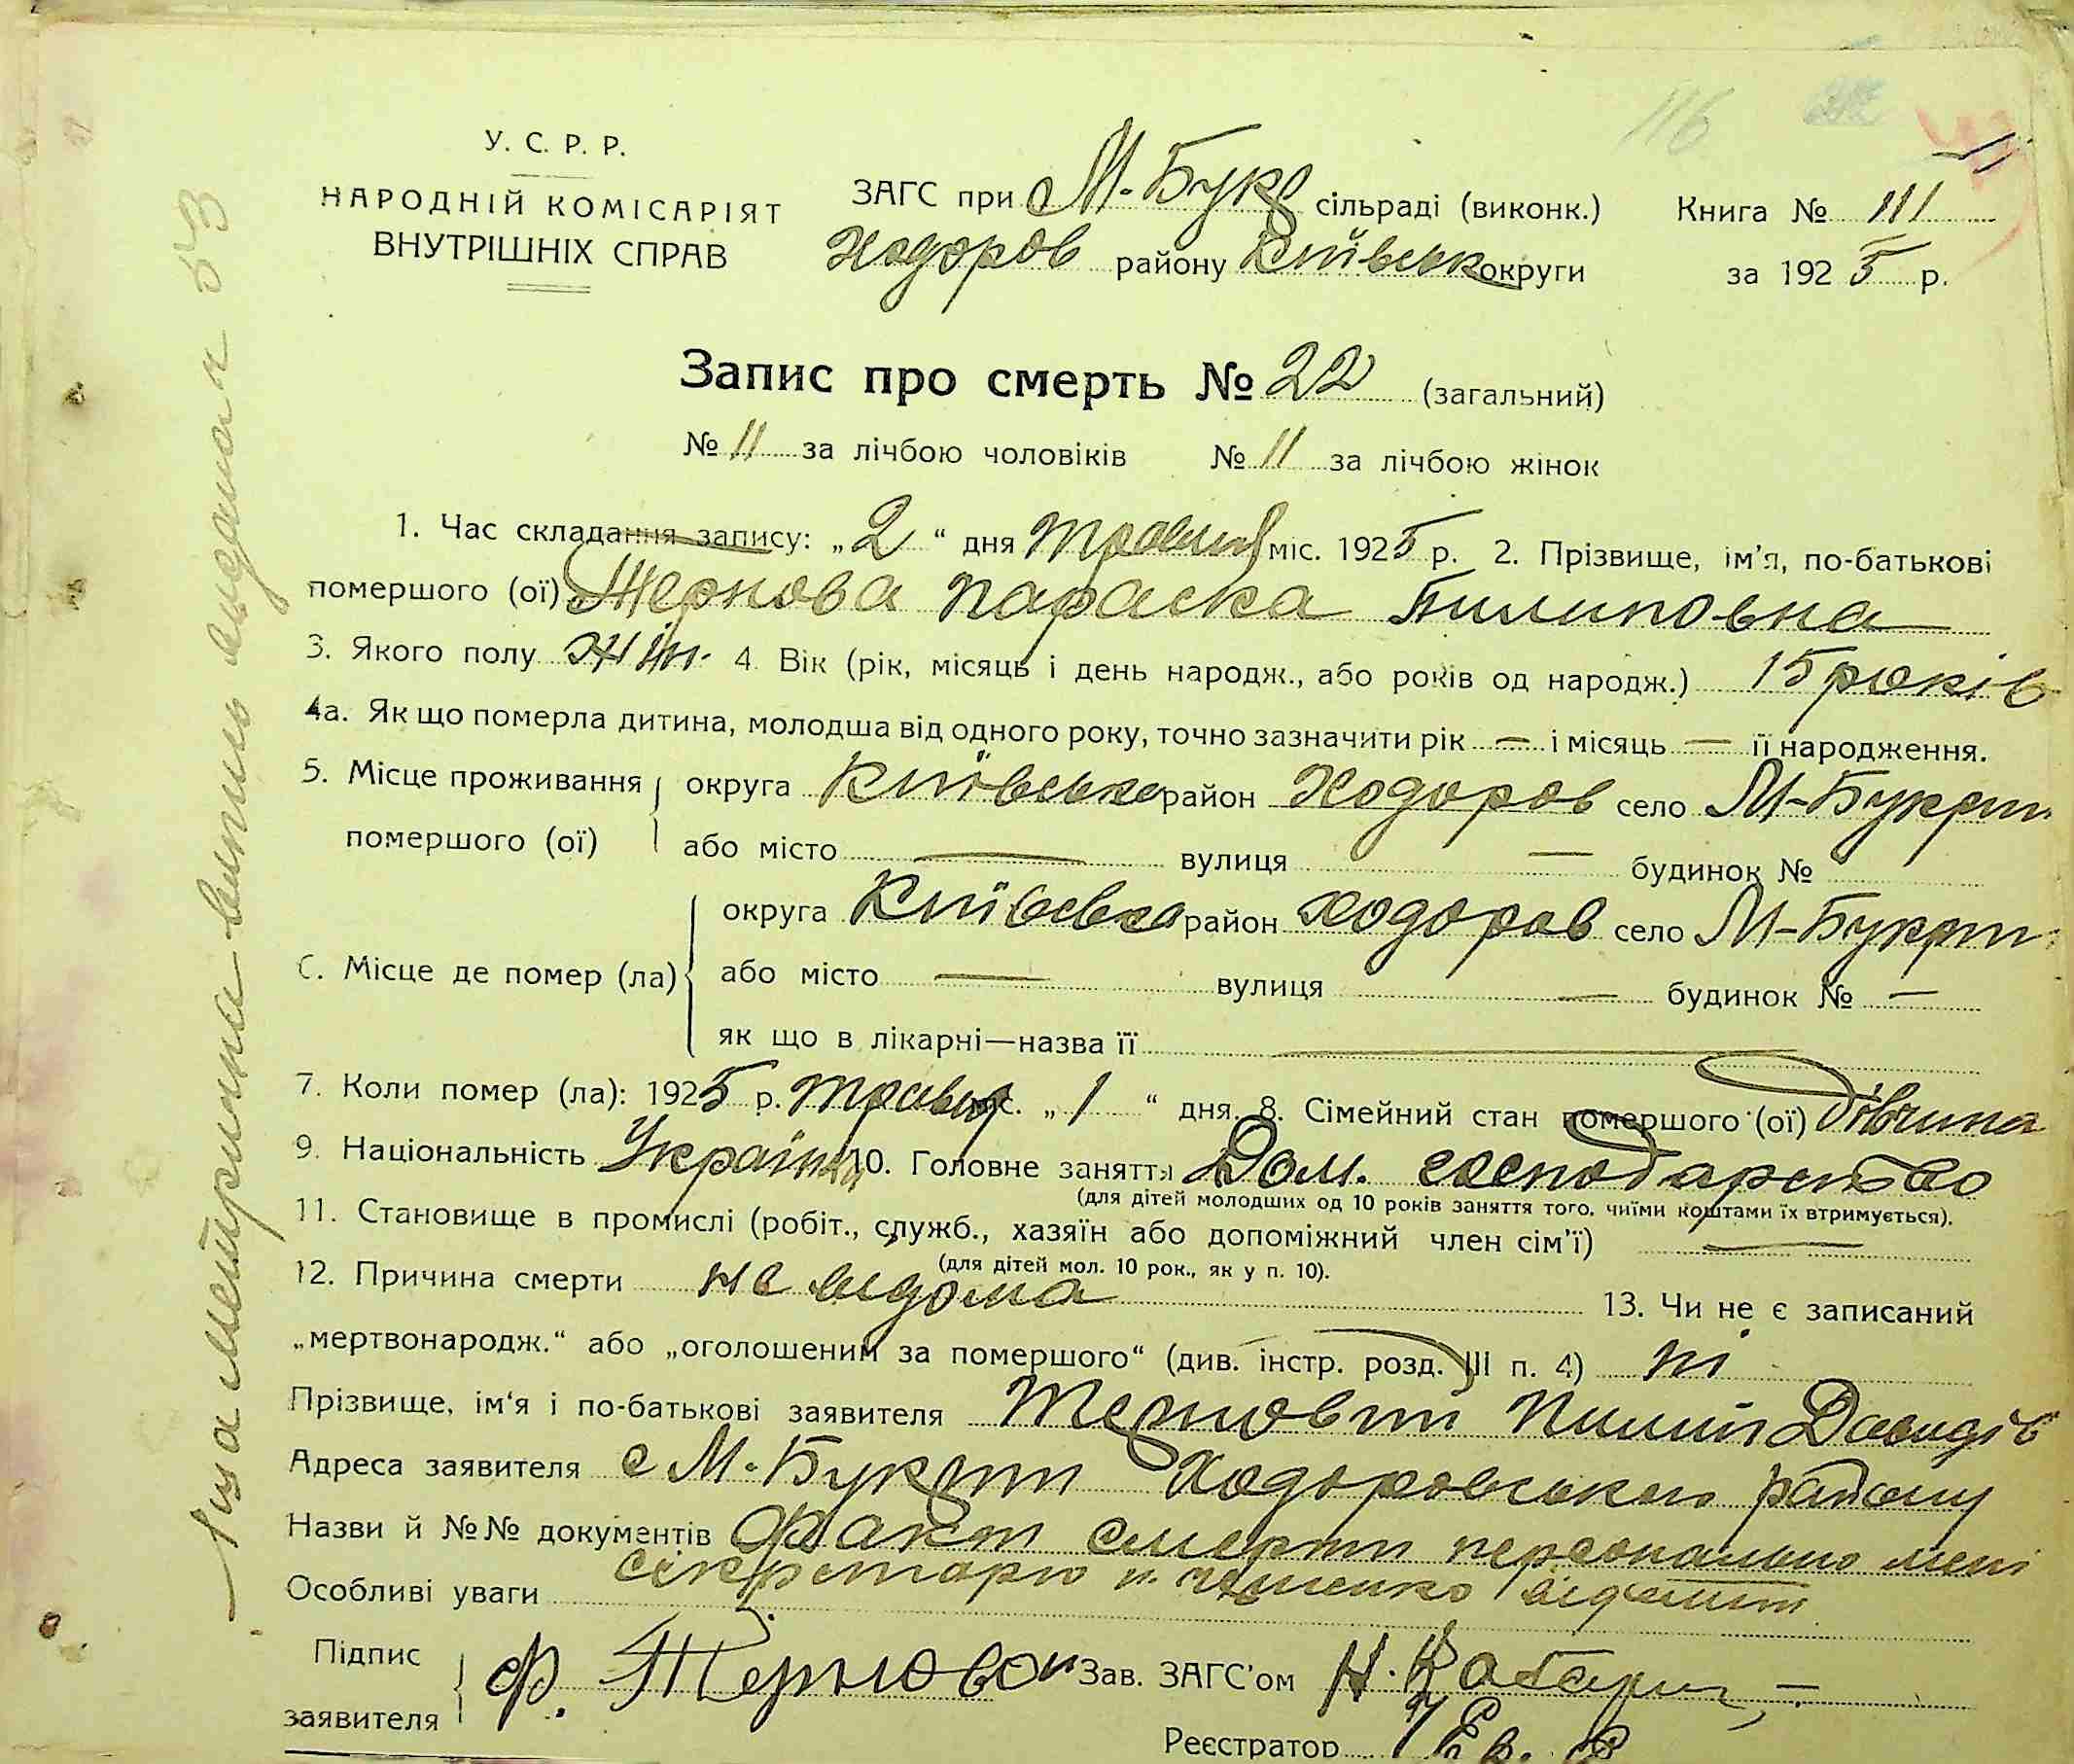 116
У. С. Р. Р.
НАРОДНІЙ КОМІСАРІЯТ
ВНУТРІШНІХ СПРАВ
ЗАГС при М-Букр сільраді (виконк.)
Ходоров району Київськ округи
Книга № III
за 1925 р.
Запис про смерть № 22 (загальний)
№ 11 за лічбою чоловіків № 11 за лічбою жінок
1. Час складання запису: „2“ дня травня міс. 1925 р. 2. Прізвище, ім'я, по-батькові
помершого (ої) Тернова Параска Пилиповна
3. Якого полу жін. 4. Вік (рік, місяць і день народж., або років од народж.) 15 років
4а. Як що померла дитина, молодша від одного року, точно зазначити рік — і місяць — її народження.
5. Місце проживання помершого (ої) округа Київська район Ходоров село М-Букрин
або місто — вулиця — будинок №
6. Місце де помер (ла) округа Київська район Ходоров село М-Букрин
або місто — вулиця — будинок № —
як що в лікарні—назва її —
7. Коли помер (ла): 1925 р. травня міс. „1“ дня. 8. Сімейний стан помершого (ої) дівчина
9. Національність Українка 10. Головне заняття Дом. господарство
(для дітей молодших од 10 років заняття того, чиїми коштами їх втримується).
11. Становище в промислі (робіт., служб., хазяїн або допоміжний член сім'ї) —
(для дітей мол. 10 рок., як у п. 10).
12. Причина смерти не відома 13. Чи не є записаний
„мертвонародж.“ або „оголошеним за помершого“ (див. інстр. розд. III п. 4) ні
Прізвище, ім'я і по-батькові заявителя Терновий Пилип Давидів
Адреса заявителя с М-Букрин Ходоровського району
Назви й №№ документів Факт смерти персонально мені
сікретарю відомий
Особливі уваги
Підпис заявителя Ф. Терновой Зав. ЗАГС'ом
Реєстратор